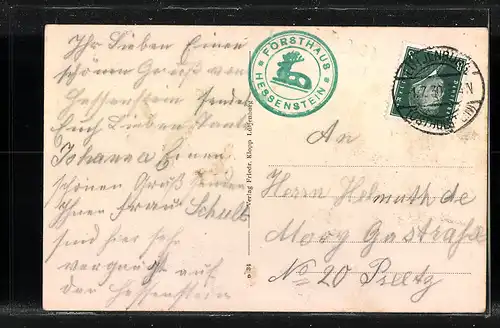 Ihr Lieben Einen
schönen Gruß von
Hessenstein sendet
Euch Lieben Tante
Johanna Einen
schönen Gruß senden
Ihnen Frau Schult
sind hier sehr
vergnügt auf
den Hessenstein
FORSTHAUS
HESSENSTEIN
Verlag Friedr. Klopp Lütjenburg
An
Herrn Helmuth de
Mooy Gastraße
No 20 Preetz